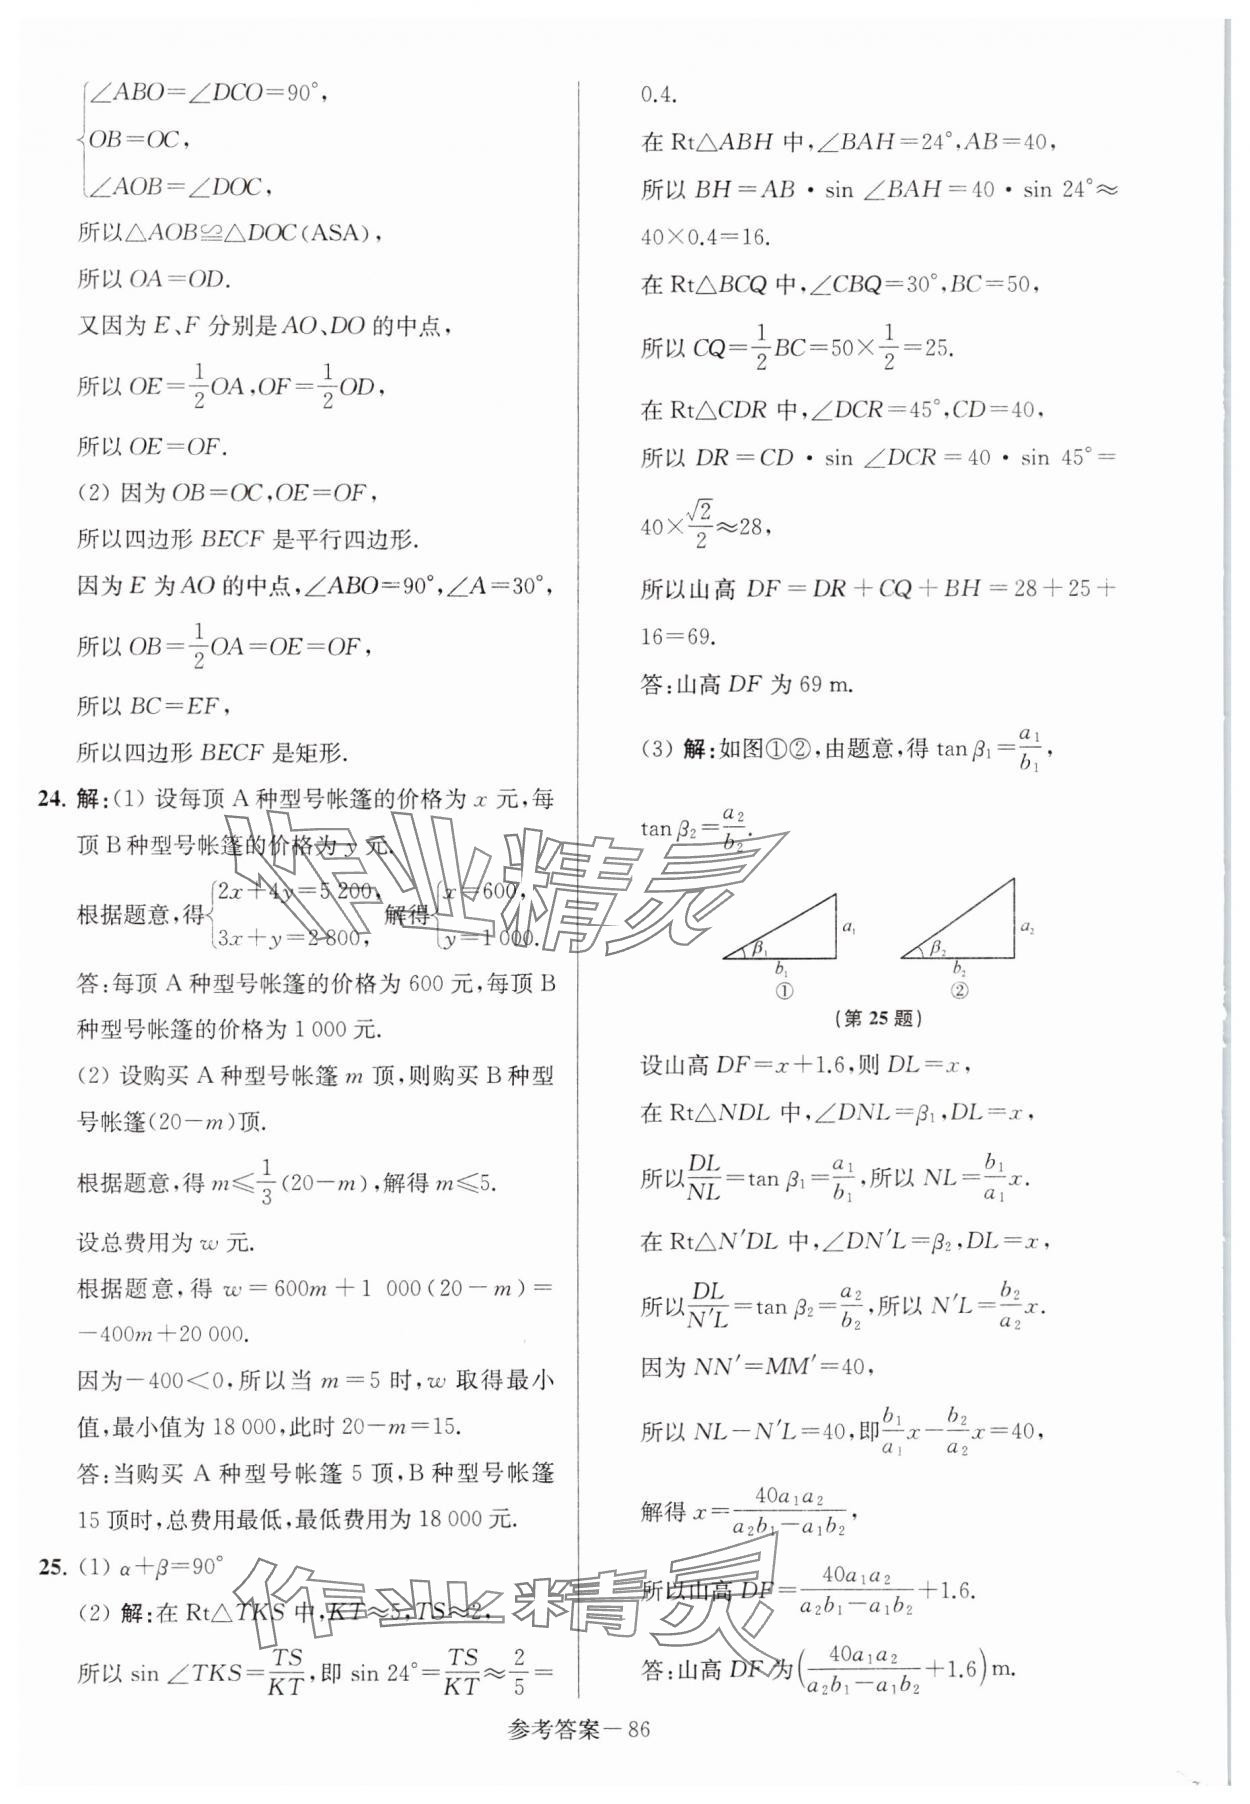 ∠ABO=∠DCO=90°,
OB=OC,
∠AOB=∠DOC,
所以△AOB≌△DOC(ASA),
所以 OA=OD.
又因为 E、F 分别是 AO、DO 的中点,
所以 OE=1/2OA,OF=1/2OD,
所以 OE=OF.
(2) 因为 OB=OC,OE=OF,
所以四边形 BECF 是平行四边形.
因为 E 为 AO 的中点,∠ABO=90°,∠A=30°,
所以 OB=1/2OA=OE=OF,
所以 BC=EF,
所以四边形 BECF 是矩形.
24. 解:(1) 设每顶 A 种型号帐篷的价格为 x 元,每
顶 B 种型号帐篷的价格为 y 元.
根据题意,得{2x+4y=5 200, 3x+y=2 800, 解得{x=600, y=1 000.
答:每顶 A 种型号帐篷的价格为 600 元,每顶 B
种型号帐篷的价格为 1 000 元.
(2) 设购买 A 种型号帐篷 m 顶,则购买 B 种型
号帐篷(20-m)顶.
根据题意,得 m≤1/3(20-m),解得 m≤5.
设总费用为 w 元.
根据题意,得 w=600m+1 000(20-m)=
-400m+20 000.
因为-400<0,所以当 m=5 时,w 取得最小
值,最小值为 18 000,此时 20-m=15.
答:当购买 A 种型号帐篷 5 顶,B 种型号帐篷
15 顶时,总费用最低,最低费用为 18 000 元.
25. (1) α+β=90°
(2) 解:在 Rt△TKS 中,KT≈5,TS≈2,
所以 sin ∠TKS=TS/KT,即 sin 24°=TS/KT≈2/5=
0.4.
在 Rt△ABH 中,∠BAH=24°,AB=40,
所以 BH=AB·sin ∠BAH=40·sin 24°≈
40×0.4=16.
在 Rt△BCQ 中,∠CBQ=30°,BC=50,
所以 CQ=1/2BC=50×1/2=25.
在 Rt△CDR 中,∠DCR=45°,CD=40,
所以 DR=CD·sin ∠DCR=40·sin 45°=
40×√2/2≈28,
所以山高 DF=DR+CQ+BH=28+25+
16=69.
答:山高 DF 为 69 m.
(3) 解:如图①②,由题意,得 tan β₁=a₁/b₁,
tan β₂=a₂/b₂.
β₁ a₁ b₁ ①
β₂ a₂ b₂ ②
(第 25 题)
设山高 DF=x+1.6,则 DL=x,
在 Rt△NDL 中,∠DNL=β₁,DL=x,
所以DL/NL=tan β₁=a₁/b₁,所以 NL=b₁/a₁x.
在 Rt△N′DL 中,∠DN′L=β₂,DL=x,
所以DL/N′L=tan β₂=a₂/b₂,所以 N′L=b₂/a₂x.
因为 NN′=MM′=40,
所以 NL-N′L=40,即b₁/a₁x-b₂/a₂x=40,
解得 x=40a₁a₂/(a₂b₁-a₁b₂),
所以山高 DF=40a₁a₂/(a₂b₁-a₁b₂)+1.6.
答:山高 DF 为(40a₁a₂/(a₂b₁-a₁b₂)+1.6)m.
参考答案—86
作业精灵
作业精灵